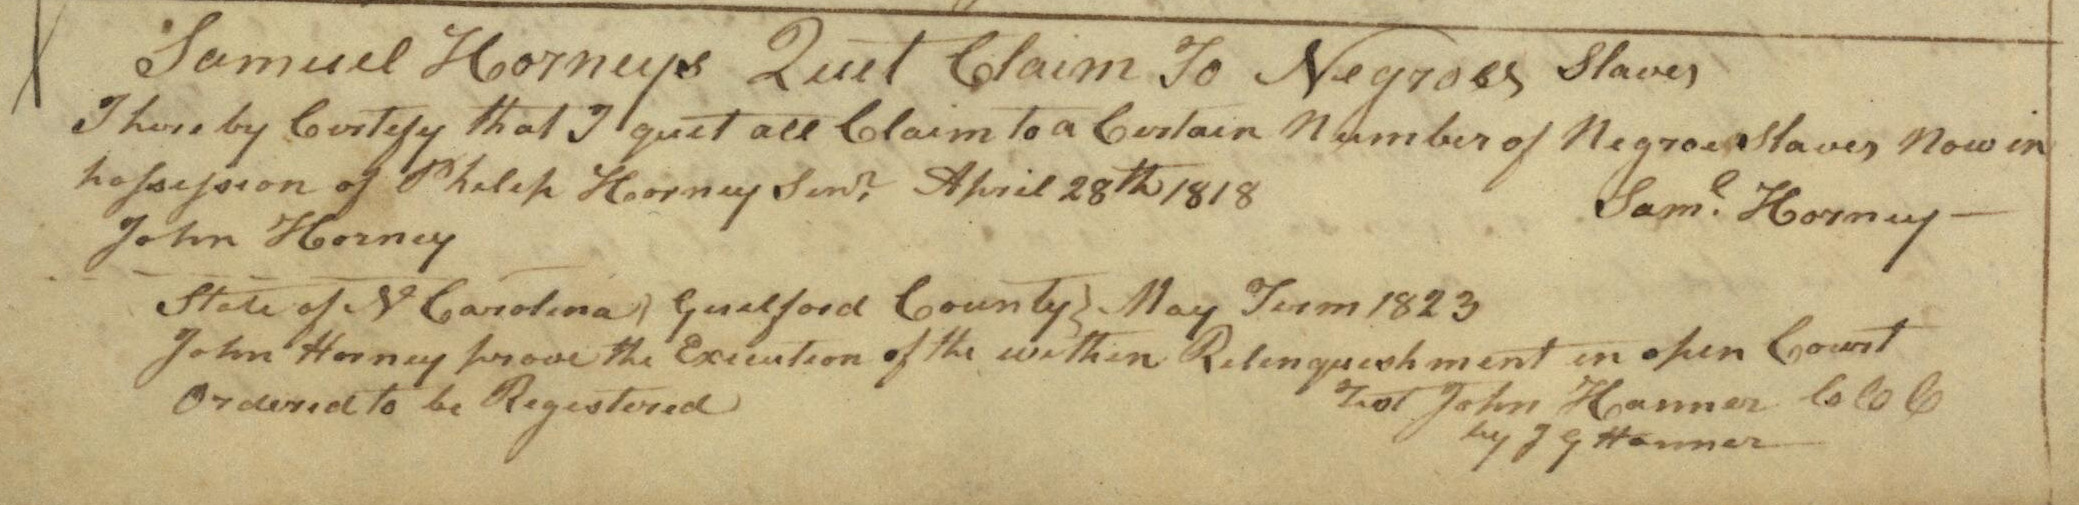 Samuel Horneys Quit Claim To Negroes Slaves
I hereby Certify that I quit all Claim to a Certain Number of Negroes Slaves Now in
possession of Philip Horney Senr. April 28th 1818 Saml. Horney
John Horney
State of No Carolina } Guilford County } May Term 1823
John Horney prove the Execution of the within Relinquishment in open Court
Ordered to be Registered Test John Hanner C C C
by J G Hanner